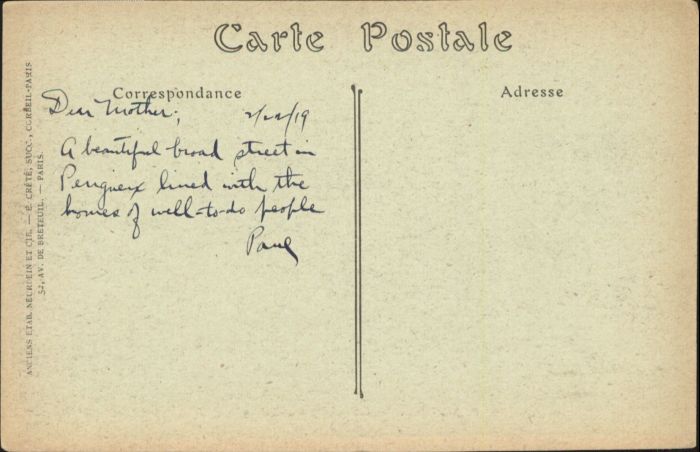 Carte Postale
Correspondance
Adresse
Dear Mother; 2/22/19
A beautiful broad street in
Perigueux lined with the
homes of well-to-do people
Paul
ANCIENS ETAB. NEURDEIN ET CIE. — E. CRÉTÉ, SUCC., CORBEIL-PARIS
52, AV. DE BRETEUIL. — PARIS.